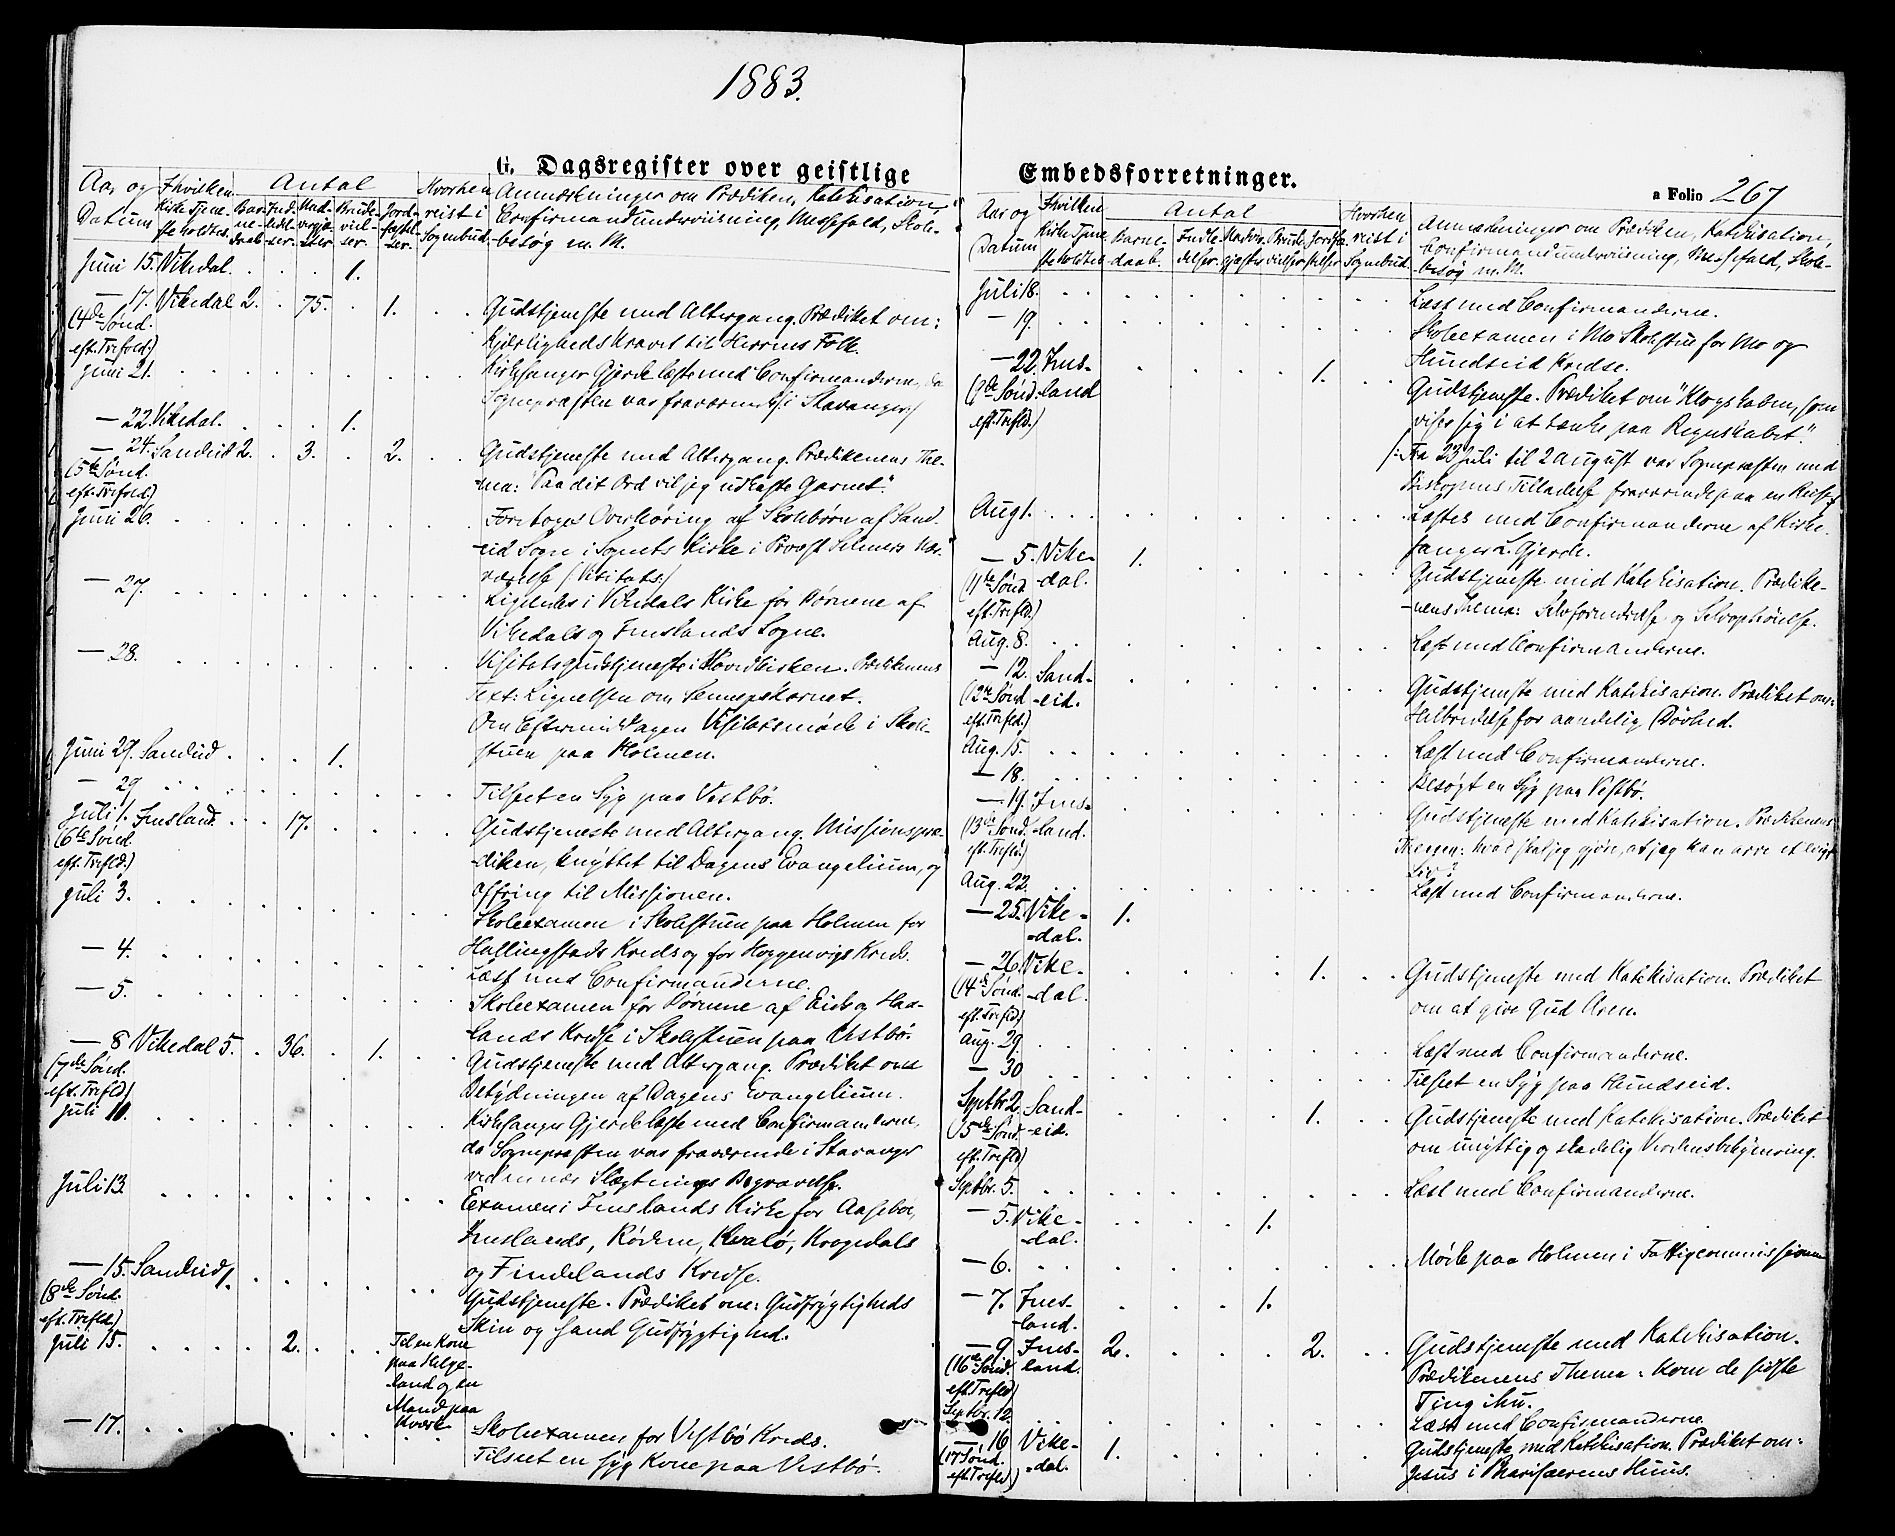 1883.
G. Dagsregister over geistlige
Aar og Datum
I hvilken Kirke Tjeneste holdtes.
Antal
Barnedaab.
Indledelser.
Nadvergjæster.
Brudevielser.
Jordfæstelser.
Hvorhen reist i Sognebud.
Anmærkninger om Prædiken, Katekisation,
Confirmandundervisning, Messefald, Skole-
besøg m. M.
Juni 15. Vikedal. 1.
— 17. Vikedal 2. 75. 1. Gudstjeneste med Altergang. Prædiket om:
(4de Sønd. eft. Trefold.) Kjærlighedskravet til Herrens Folk.
Juni 21. Kirkesanger Gjerde læste med Confirmanderne, da
Sognepræsten var fraværende i Stavanger.
— 22. Vikedal. 1.
— 24. Sandeid 2. 3. 2. Gudstjeneste med Altergang. Prædikenens The-
(5te Sønd. eft. Trefold.) ma: "Paa dit Ord vil jeg udkaste Garnet".
Juni 26. Foretoges Overhøring af Skolebørn af Sand-
eid Sogn i Sognets Kirke i Provst Selmers Nær-
værelse (Visitats.)
— 27. Ligeledes i Vikedals Kirke for Børnene af
Vikedals og Imslands Sogne.
— 28. Visitatsgudstjeneste i Hovedkirken. Prædikenens
Text: Lignelsen om Sennepskornet.
Om Eftermiddagen Visitatsmøde i Skole-
stuen paa Holmen.
Juni 29. Sandeid 1.
— 29 Tilseet en Syg paa Vestbø.
Juli 1. Imsland. 17. Gudstjeneste med Altergang. Missionspræ-
(6te Sønd. eft. Trefld.) diken, knyttet til Dagens Evangelium, og
Offring til Missionen.
Juli 3. Skoleexamen i Skolestuen paa Holmen for
Hallingstads Kreds og for Hoggenvigs Kreds.
— 4. Læst med Confirmanderne.
— 5. Skoleexamen for Børnene af Eids og Haa-
lands Kredse i Skolestuen paa Vestbø.
— 8 Vikedal 5. 36. 1. Gudstjeneste med Altergang. Prædiket om
(7de Sønd. eft. Trefld) Betydningen af Dagens Evangelium.
Juli 11. Kirkesanger Gjerde læste med Confirmanderne,
da Sognepræsten var fraværende i Stavanger
ved en nær Slægtnings Begravelse.
Juli 13. Examen i Imslands Kirke for Aasebø,
Imslands, Rødne, Kvalø, Krogedals
og Findelands Kredse.
— 15. Sandeid 1. Gudstjeneste. Prædiket om: Gudfrygtigheds
(8de Sønd. eft. Trefld.) Skin og sand Gudfrygtighed.
Juli 15. 2. Til en Kone paa Helgeland og en Mand paa
— 17. Skoleexamen for Vestbø Kreds.
Tilseet en syg Kone paa Vestbø.
Embedsforretninger.
a Folio 267
Aar og Datum
I hvilken Kirke Tjeneste holdtes
Antal
Barnedaab.
Indledelser.
Nadvergjæster
Brudevielser
Jordfæstelser
Hvorhen reist i Sognebud.
Anmærkninger om Prædiken, Katekisation,
Confirmandundervisning, Messefald, Skole-
besøg m. M.
Juli 18. Læst med Confirmanderne.
— 19. Skoleexamen i Mo Skolestue for Mo og
Hundseid Kredse.
— 22. Imsland 1. Gudstjeneste. Prædiket om "Klogskaben, som
(9de Sønd. eft. Trefld.) viser sig i at tænke paa Regnskabet".
/: Fra 23 Juli til 2 August var Sognepræsten med
Biskopens Tilladelse fraværende paa en Reise.
Aug 1. Læstes med Confirmanderne af Kirke-
sanger L. Gjerde.
— 5. Vikedal. 1. Gudstjeneste med Katekisation. Prædike-
(11te Sønd eft. Trefld.) nens Thema: Selvfornedrelse og Selvophøielse.
Aug. 8. Læst med Confirmanderne.
— 12. Sandeid. Gudstjeneste med Katekisation. Prædiket om:
(12te Sønd eft. Trefld.) Helbredelse for aandelig Døvhed.
Aug. 15. Læst med Confirmanderne.
— 18. Besøgt en Syg paa Vestbø.
— 19. Imsland. Gudstjeneste med Katekisation. Prædikenens
(13de Sønd. eft. Trefld.) Thema: hvad skal jeg gjøre, at jeg kan arve et evigt
Liv?
Aug. 22. Læst med Confirmanderne.
— 25. Vikedal. 1.
— 26. Vikedal. 1. Gudstjeneste med Katekisation. Prædiket
(14de Sønd. eft. Trefld) om at give Gud Æren.
Aug. 29 Læst med Confirmanderne.
— 30 Tilseet en Syg paa Hundseid.
Septbr 2. Sandeid. 1. Gudstjeneste med Katekisation. Prædiket
(15de Sønd. eft. Trefld) om unyttig og skadelig Verdensbekymring.
Septbr. 5. Læst med Confirmanderne.
— 5. Vikedal. 1.
— 6. Møde paa Holmen i Fattigcommissionen
— 7. Imsland. 1.
— 9. Imsland. 2. 2. Gudstjeneste med Katekisation.
(16de Sønd. eft. Trefld) Prædikenens Thema: Kom de sidste
Ting ihu.
Septbr. 12. Læst med Confirmanderne.
— 16 Vikedal. 1. Gudstjeneste med Katekisation. Prædiket om:
(17 Sønd. eft. Trefld) Jesus i Pharisæerens Huus.